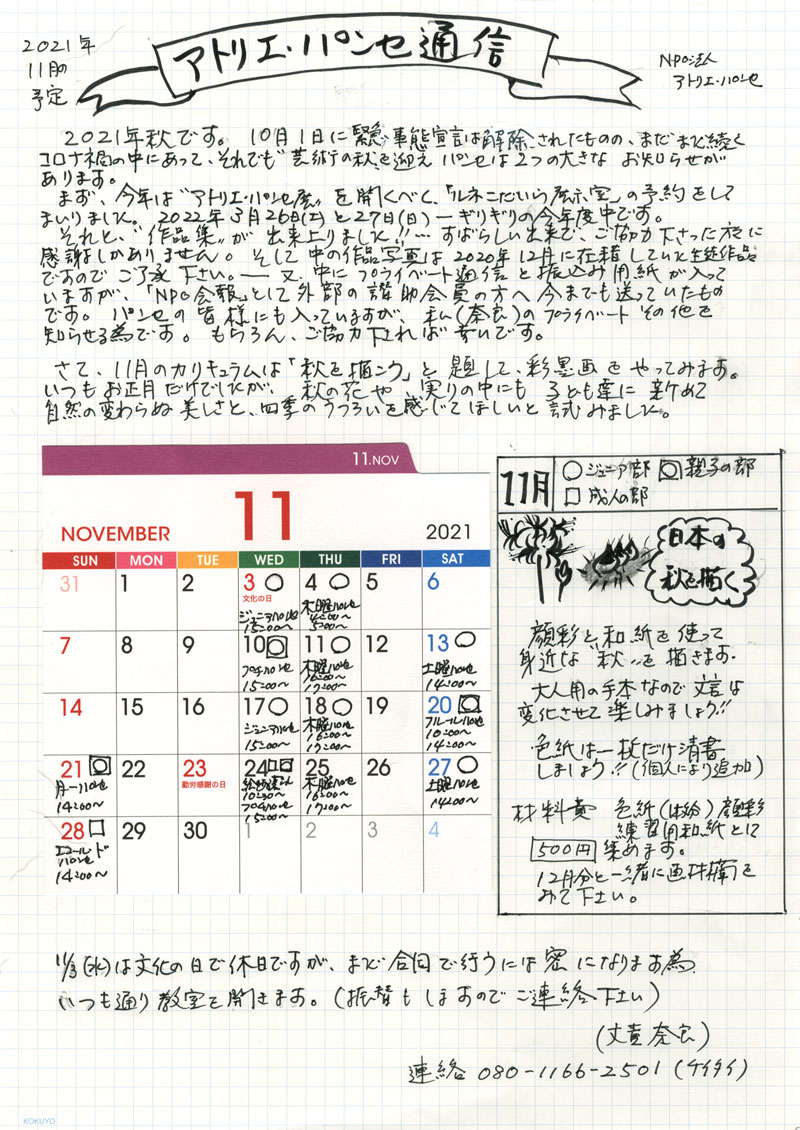 2021年
11月の
予定
アトリエ・パンセ通信
NPO法人
アトリエ・パンセ
2021年秋です。 10月1日に緊急事態宣言は解除されたものの、まだまだ続く
コロナ禍の中にあって、それでも"芸術の秋"を迎え パンセは2つの大きな お知らせが
あります。
まず、今年は"アトリエ・パンセ展"を開くべく、「ルネこだいら展示室」の予約をして
まいりました。 2022年3月26日(土)と27日(日)ーギリギリの今年度中です。
それと、"作品集"が 出来上りました!!… すばらしい出来で、ご協力下さった方に
感謝しかありません。そして中の作品写真は2020年12月に在籍していた生徒作品
ですので ご了承下さい。― 又、中に プライベート通信と振込み用紙が入って
いますが、「NPO会報」として外部の賛助会員の方へ今までも送っていたもの
です。パンセの皆様にも入っていますが、私(奈良)のプライベートその他を
知らせる為です。もちろん、ご協力下されば幸いです。
さて、11月のカリキュラムは「秋を描こう」と題して、彩墨画をやってみます。
いつもお正月だけでしたが、 秋の花や 実りの中にも 子ども達に 新めて
自然の変わらぬ美しさと、四季のうつろいを感じてほしいと試みました。
11.NOV
NOVEMBER 11 2021
SUN MON TUE WED THU FRI SAT
31 1 2 3 4 5 6
文化の日
ジュニアパンセ 15:00〜
木曜パンセ
7 8 9 10 11 12 13
プチパンセ 15:00〜
木曜パンセ 16:00〜 17:00〜
土曜パンセ 14:00〜
14 15 16 17 18 19 20
ジュニアパンセ 15:00〜
木曜パンセ 16:00〜 17:00〜
フルールパンセ 10:00〜 14:00〜
21 22 23 24 25 26 27
勤労感謝の日
パンセ 14:00〜
10:30〜 プチパンセ 15:00〜
木曜パンセ 16:00〜 17:00〜
土曜パンセ 14:00〜
28 29 30 1 2 3 4
エコールド パンセ 14:00〜
11月
ジュニア部 親子の部
成人の部
日本の
秋を描く
顔彩と和紙を使って
身近な"秋"を描きます.
大人用の手本なので文言は
変化させて楽しみましょう!!
色紙は一枚だけ清書
しましょう!!(個人により追加)
材料費 色紙(1枚) 顔彩
練習用和紙として
500円 集めます。
12月分と一緒に画材欄を
みて下さい。
11/3(水)は文化の日で休日ですが、まだ合同で行うには密になります為
いつも通り教室を開きます。(振替もしますのでご連絡下さい)
(文責 奈良)
連絡 080-1166-2501 (ケイタイ)
KOKUYO